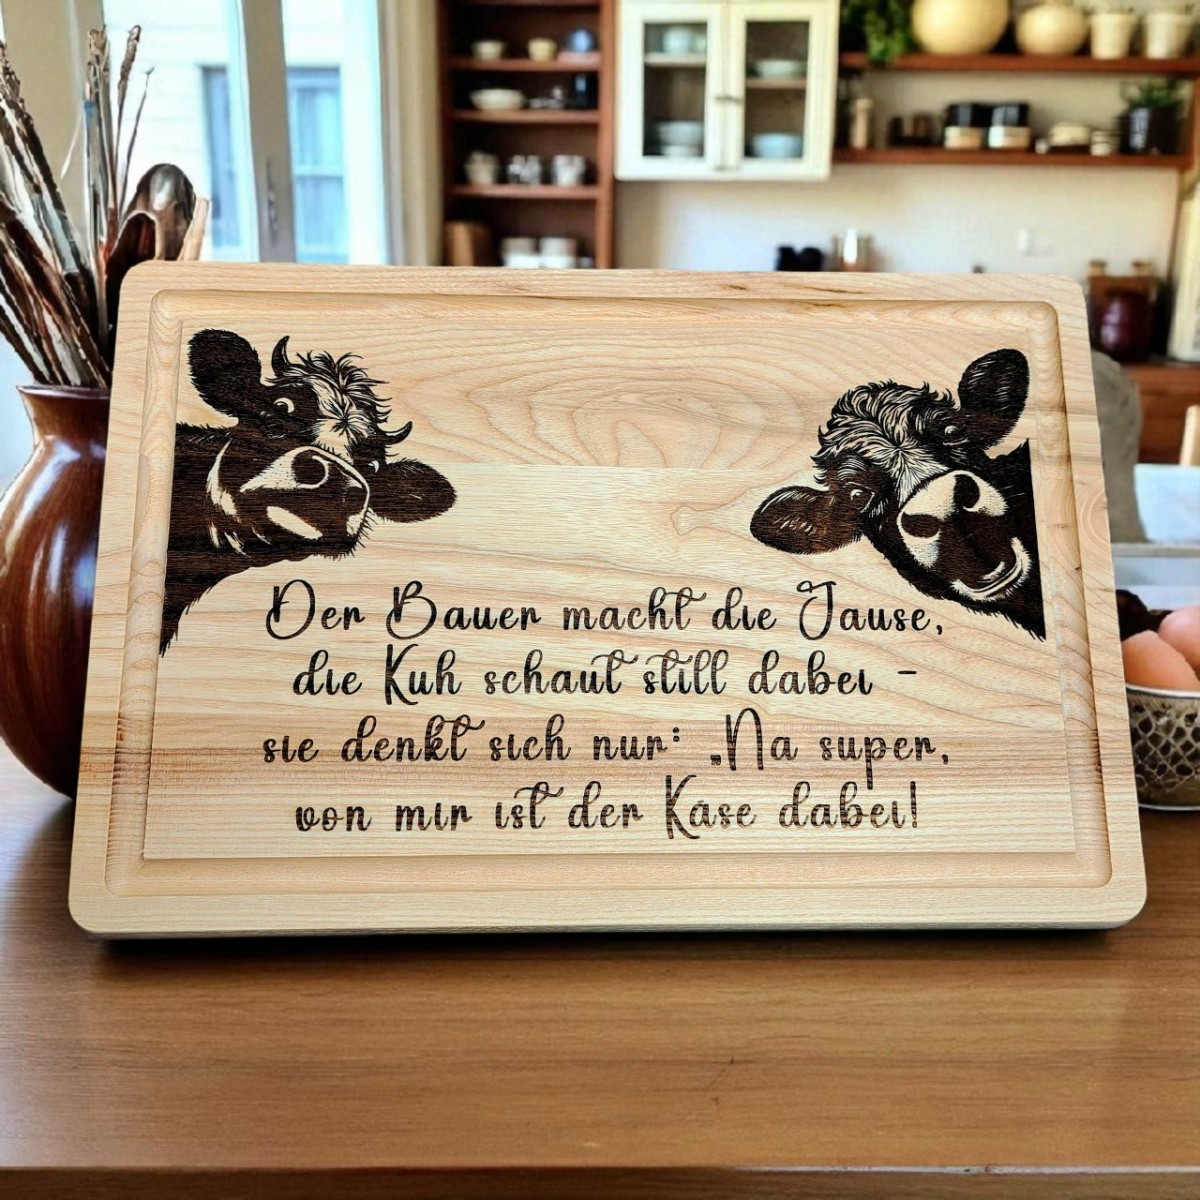 Der Bauer macht die Jause,
die Kuh schaut still dabei -
sie denkt sich nur: „Na super,
von mir ist der Käse dabei!